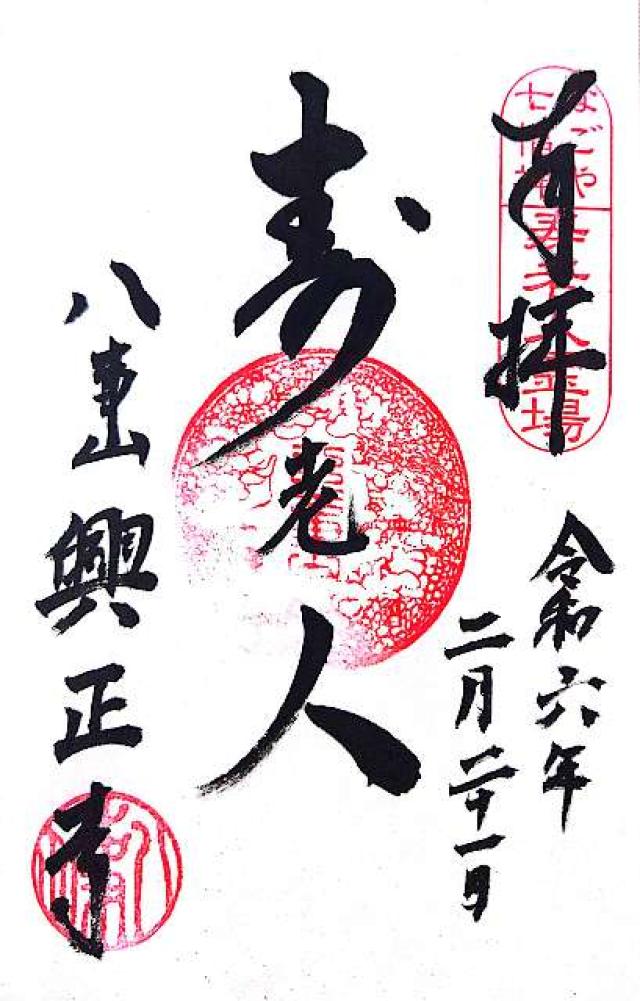 奉拝
なごや
七福神
寿老人霊場
令和六年
二月二十一日
寿老人
八事山 興正寺